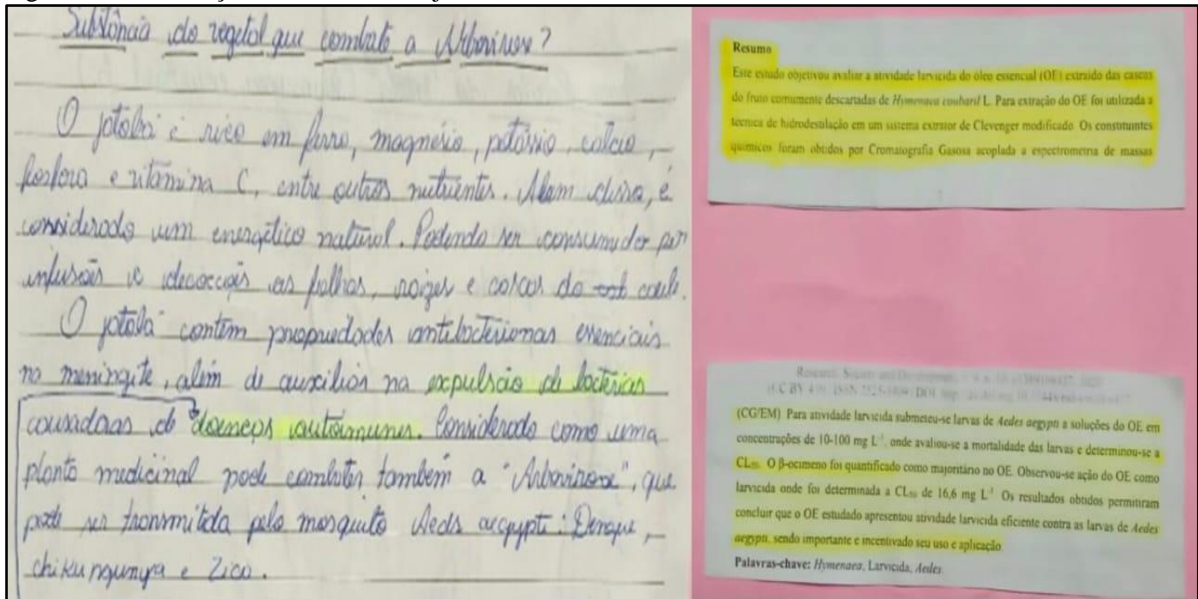 Substância do vegetal que combate a Arbovirose?
O jatobá é rico em ferro, magnésio, potássio, cálcio,
fósforo e vitamina C, entre outros nutrientes. Alem disso, é
considerado um energético natural. Podendo ser consumidor por
infusões e decocções as folhas, raizes e cascas do caule.
O jatobá contém propriedades antibacterianas essenciais
na meningite, além de auxiliar na expulsão de bactérias
causadoras de doenças autoimunes. Considerado como uma
planta medicinal pode combater também a "Arbovirose", que
pode ser transmitida pelo mosquito Aeds aegypti: Dengue,
chikungunya e Zica.
Resumo
Este estudo objetivou avaliar a atividade larvicida do óleo essencial (OE) extraído das cascas
do fruto comumente descartadas de Hymenaea courbaril L. Para extração do OE foi utilizada a
técnica de hidrodestilação em um sistema extrator de Clevenger modificado. Os constituintes
químicos foram obtidos por Cromatografia Gasosa acoplada a espectrometria de massas
Research, Society and Development
(CG/EM) Para atividade larvicida submeteu-se larvas de Aedes aegypti a soluções do OE em
concentrações de 10-100 mg L⁻¹, onde avaliou-se a mortalidade das larvas e determinou-se a
CL₅₀. O β-ocimeno foi quantificado como majoritário no OE. Observou-se ação do OE como
larvicida onde foi determinada a CL₅₀ de 16,6 mg L⁻¹ Os resultados obtidos permitiram
concluir que o OE estudado apresentou atividade larvicida eficiente contra as larvas de Aedes
aegypti, sendo importante e incentivado seu uso e aplicação.
Palavras-chave: Hymenaea, Larvicida, Aedes.